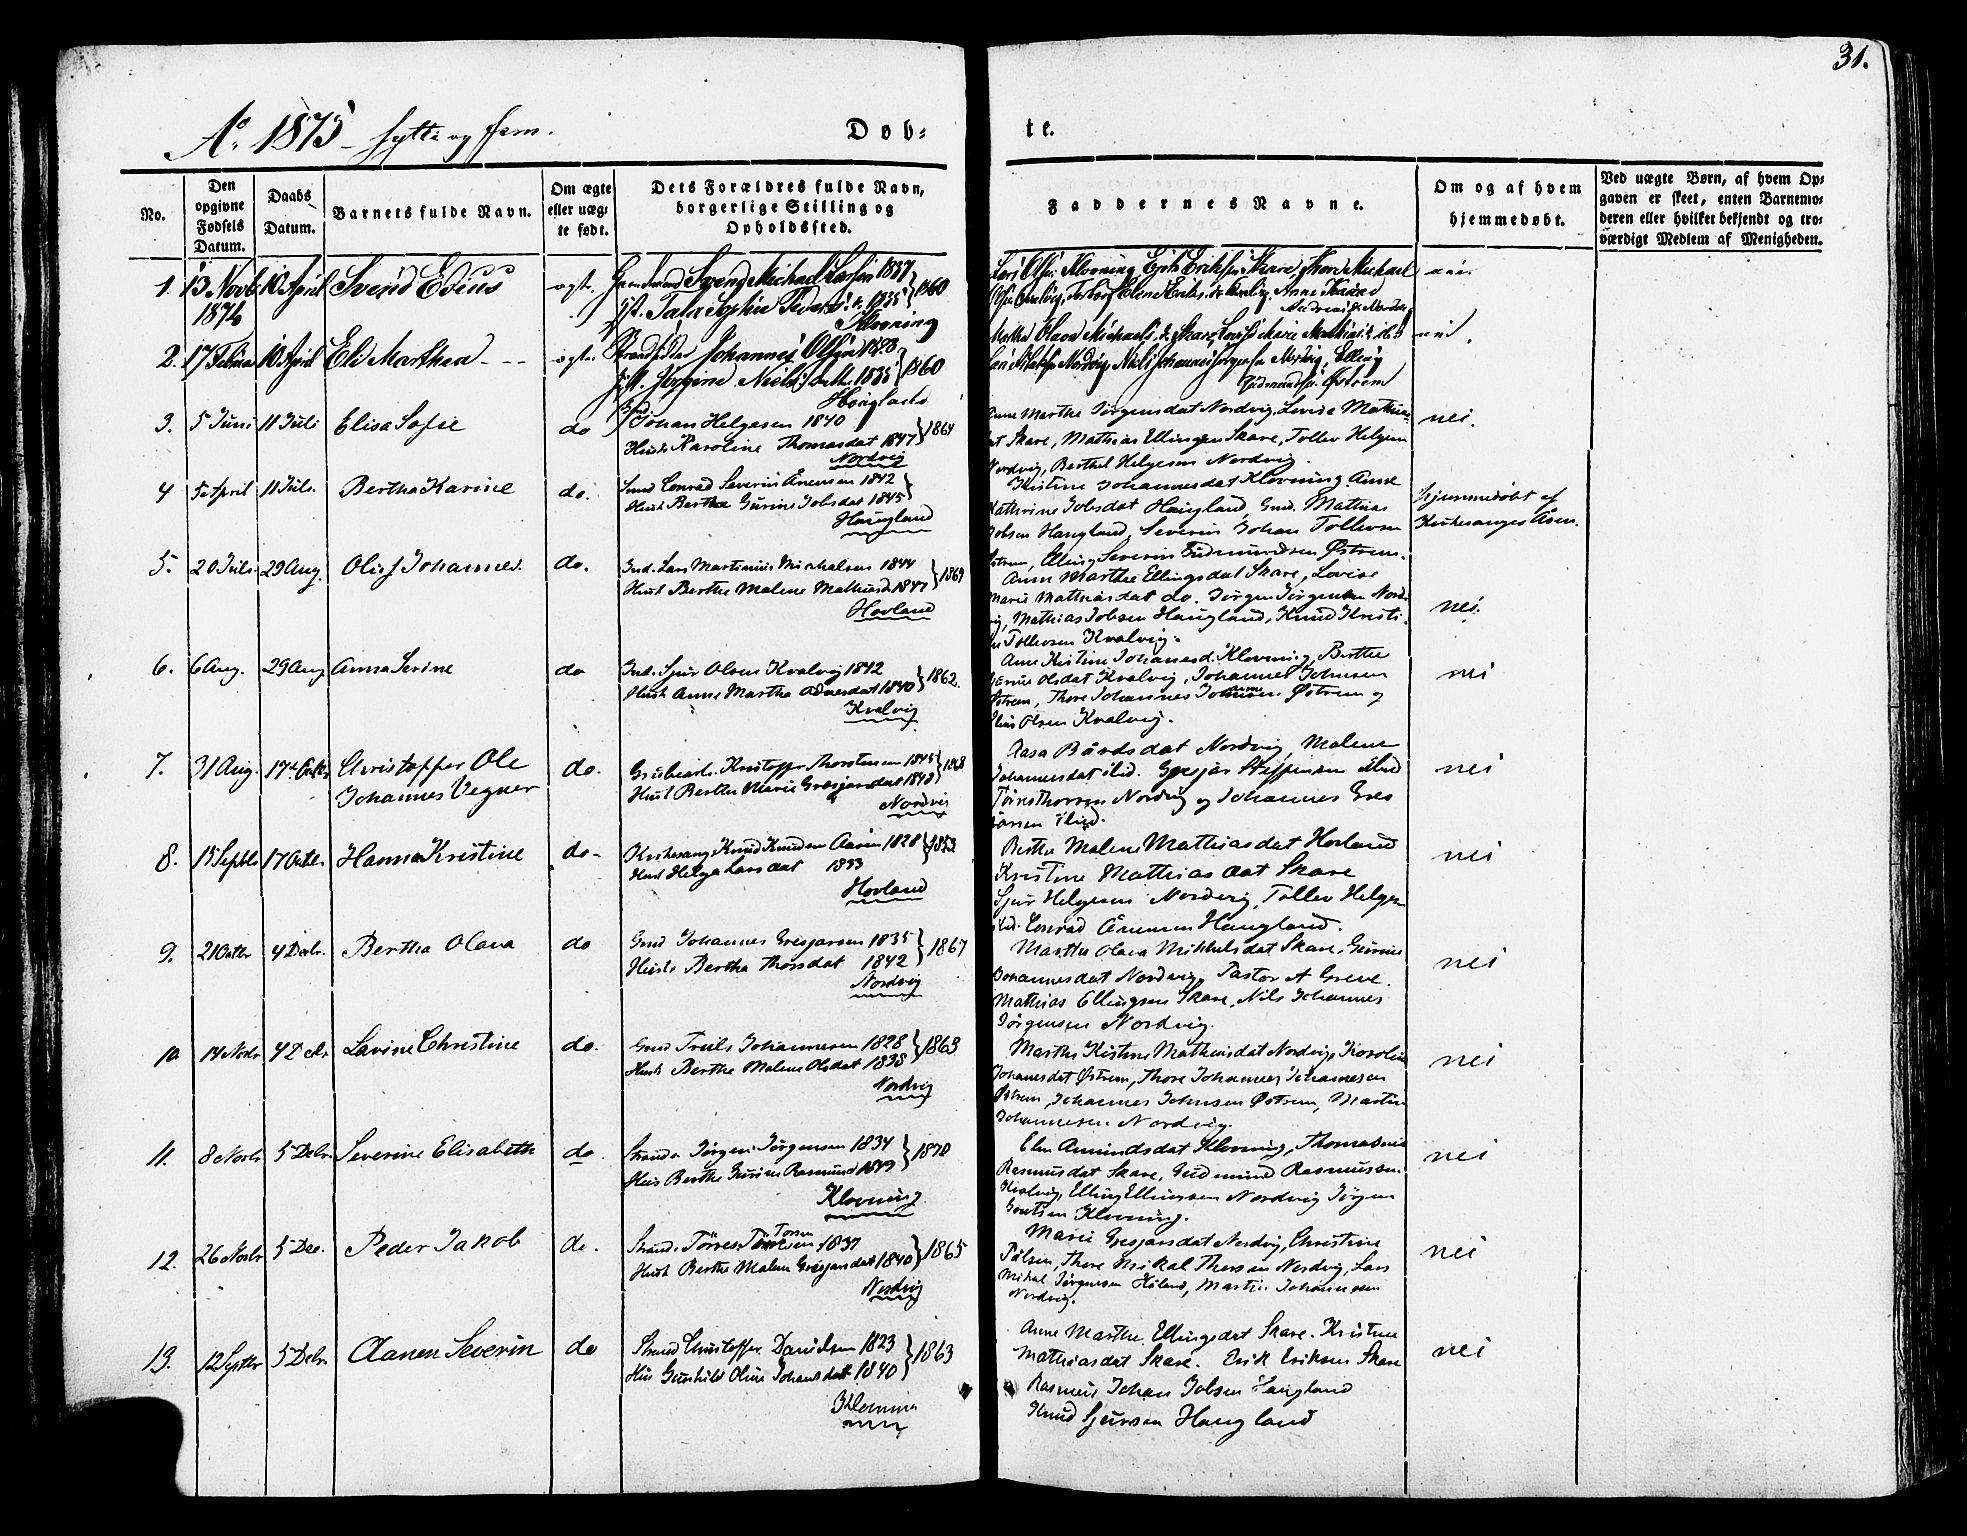 31.
Ao 1875 - sytti og fem.
Døb-
te.
No.
Den opgivne Fødsels Datum.
Daabs Datum.
Barnets fulde Navn.
Om ægte eller uægte født.
Dets Forældres fulde Navn, borgerlige Stilling og Opholdssted.
Faddernes Navne.
Om og af hvem hjemmedøbt.
Ved uægte Børn, af hvem Opgaven er skeet, enten Barnemoderen eller hvilket bekjendt og troværdigt Medlem af Menigheden.
1. 13 Novb 1874 10 April Svend Edius ægt.
Svend Michael Larsen 1837
1835 } 1860
Klovning
Lars Olsen Klovning
2. 17 Februar 10 April Eli Marthea - - ægt.
Johannes Olsen
Jørgine Niels 1835 } 1860
3. 5 Juni 11 Juli Elisa Sofie do
Johan Helgesen 1840
Hust. Karoline Thomasdat 1847 } 1864
Nordvig
Anne Marthe Jørgensdat Nordvig, Lovise Mathias-
dat Skare, Mathias Ellingsen Skare, Tollev Helgesen
Nordvig, Berthel Helgesen Nordvig.
nei.
4 5 April 11 Juli. Bertha Karine do.
Conrad Severin Ånensen 1842
Hust Bertha Gurine Jobsdat 1845 }
Haugland
Kristine Johannesdat Klovning. Anne
Kathrine Jobsdat Haugland, Gmd. Mathias
Jobsen Haugland, Severin Johan Tollevsen
Østrem, Elling Severin Gudmundsen Østrem.
Hjemmedøbt af
Kirkesanger Åsen.
5. 20 Juli 29 Aug. Oluf Johannes. do.
Lars Martinius Michalsen 1844
Hust Berthe Malene Mathiasd 1847 } 1869
Hovland
Anne Marthe Ellingsdat Skare, Lovise
Marie Mathiasdat do. Jørgen Jørgensen Nord-
vig, Mathias Jobsen Haugland, Knud Kristi-
an Tollevsen Kvalvig.
nei.
6. 6 Aug. 29 Aug Anna Serine do
Sjur Olsen Kvalvig 1842
Hust Anne Martha 1840 } 1862.
Kvalvig
Anne Kristine Johanesd. Klovning, Berthe
Olsdat Kvalvig, Johannes Johnsen
Østrem, Thore Johannes Johnsen Østrem og
Elias Olsen Kvalvig.
nei
7. 31 Aug. 17de Octb Christoffer Ole
Johannes Vegner
do.
Kristoffer Thorstensen 1845
Hust Berthe Marie Gresjarsdat 1842 } 1868
Nordvig
Aasa Bårdsdat Nordvig, Malene
Johannesdat ibid. Gresjar Steffensen ibid
Tørres Thorsen Nordvig og Johannes Gres
jarsen ibid.
nei
8. 13 Septbr 17 Octbr. Hanna Kristine do.
Kirkesang Knud Knudsen Aasen 1828
Hust Helga Larsdat 1833 } 1853
Hovland
Berthe Malene Mathiasdat Hovland
Kristine Mathiasdat Skare
Sjur Helgesen Nordvig, Tollev Helgesen
ibid. Conrad Ånensen Haugland.
nei
9. 21 Octbr 4 Decbr. Bertha Olava do
Gmd Johannes Gresjarsen 1835
Hust Bertha Thorsdat 1842 } 1867
Nordvig
Marthe Olava Mikkelsdat Skare, Gurine
Johannesdat Nordvig, Pastor A Greve.
Mathias Ellingsen Skare, Nils Johannes
Jørgensen Nordvig.
nei
10. 14 Novbr 4 Decbr Lavine Christine do.
Gmd Truls Johannesen 1828
Hust Berthe Malene Olsdat 1838 } 1863
Nordvig
Marthe Kistine Mathiasdat Nordvig, Karoline
Johanesdat Østrem, Thore Johannes Johannesen
Østrem, Johannes Johnsen Østrem, Martin
Johannesen Nordvig.
nei
11. 8 Novbr 5 Debr. Severine Elisabeth do.
Jørgen Jørgensen 1834
Hus Berthe Gurine Rasmusd 1849 } 1870
Klovning
Elen Amundsdat Klovning, Thomasine
Rasmusdat Skare, Gudmund Rasmussen
Kvalvig, Elling Ellingsen Nordvig Jørgen
Klovning.
nei
12. 26 Novbr 5 Dec. Peder Jakob do.
Tørres Torsen 1837
Hust Berthe Malene Gresjarsdat 1840 } 1865
Nordvig
Marie Gresjarsdat Nordvig, Christine
Pålsen, Thore Mikal Thorsen Nordvig, Lars
Mikal Jørgensen Høiland, Martin Johannesen
Nordvig.
nei
13. 12 Septbr 5 Debr. Aanen Severin do
Strand Christoffer Danielsen 1823
Hus Gunhild Oline Johansdatt 1840 } 1863
Klovning
Anne Marthe Ellingsdat Skare. Kristine
Mathiasdat Skare. Erik Eriksen Skare
Rasmus Johan Jobsen Haugland
Knud Sjursen Haugland
nei